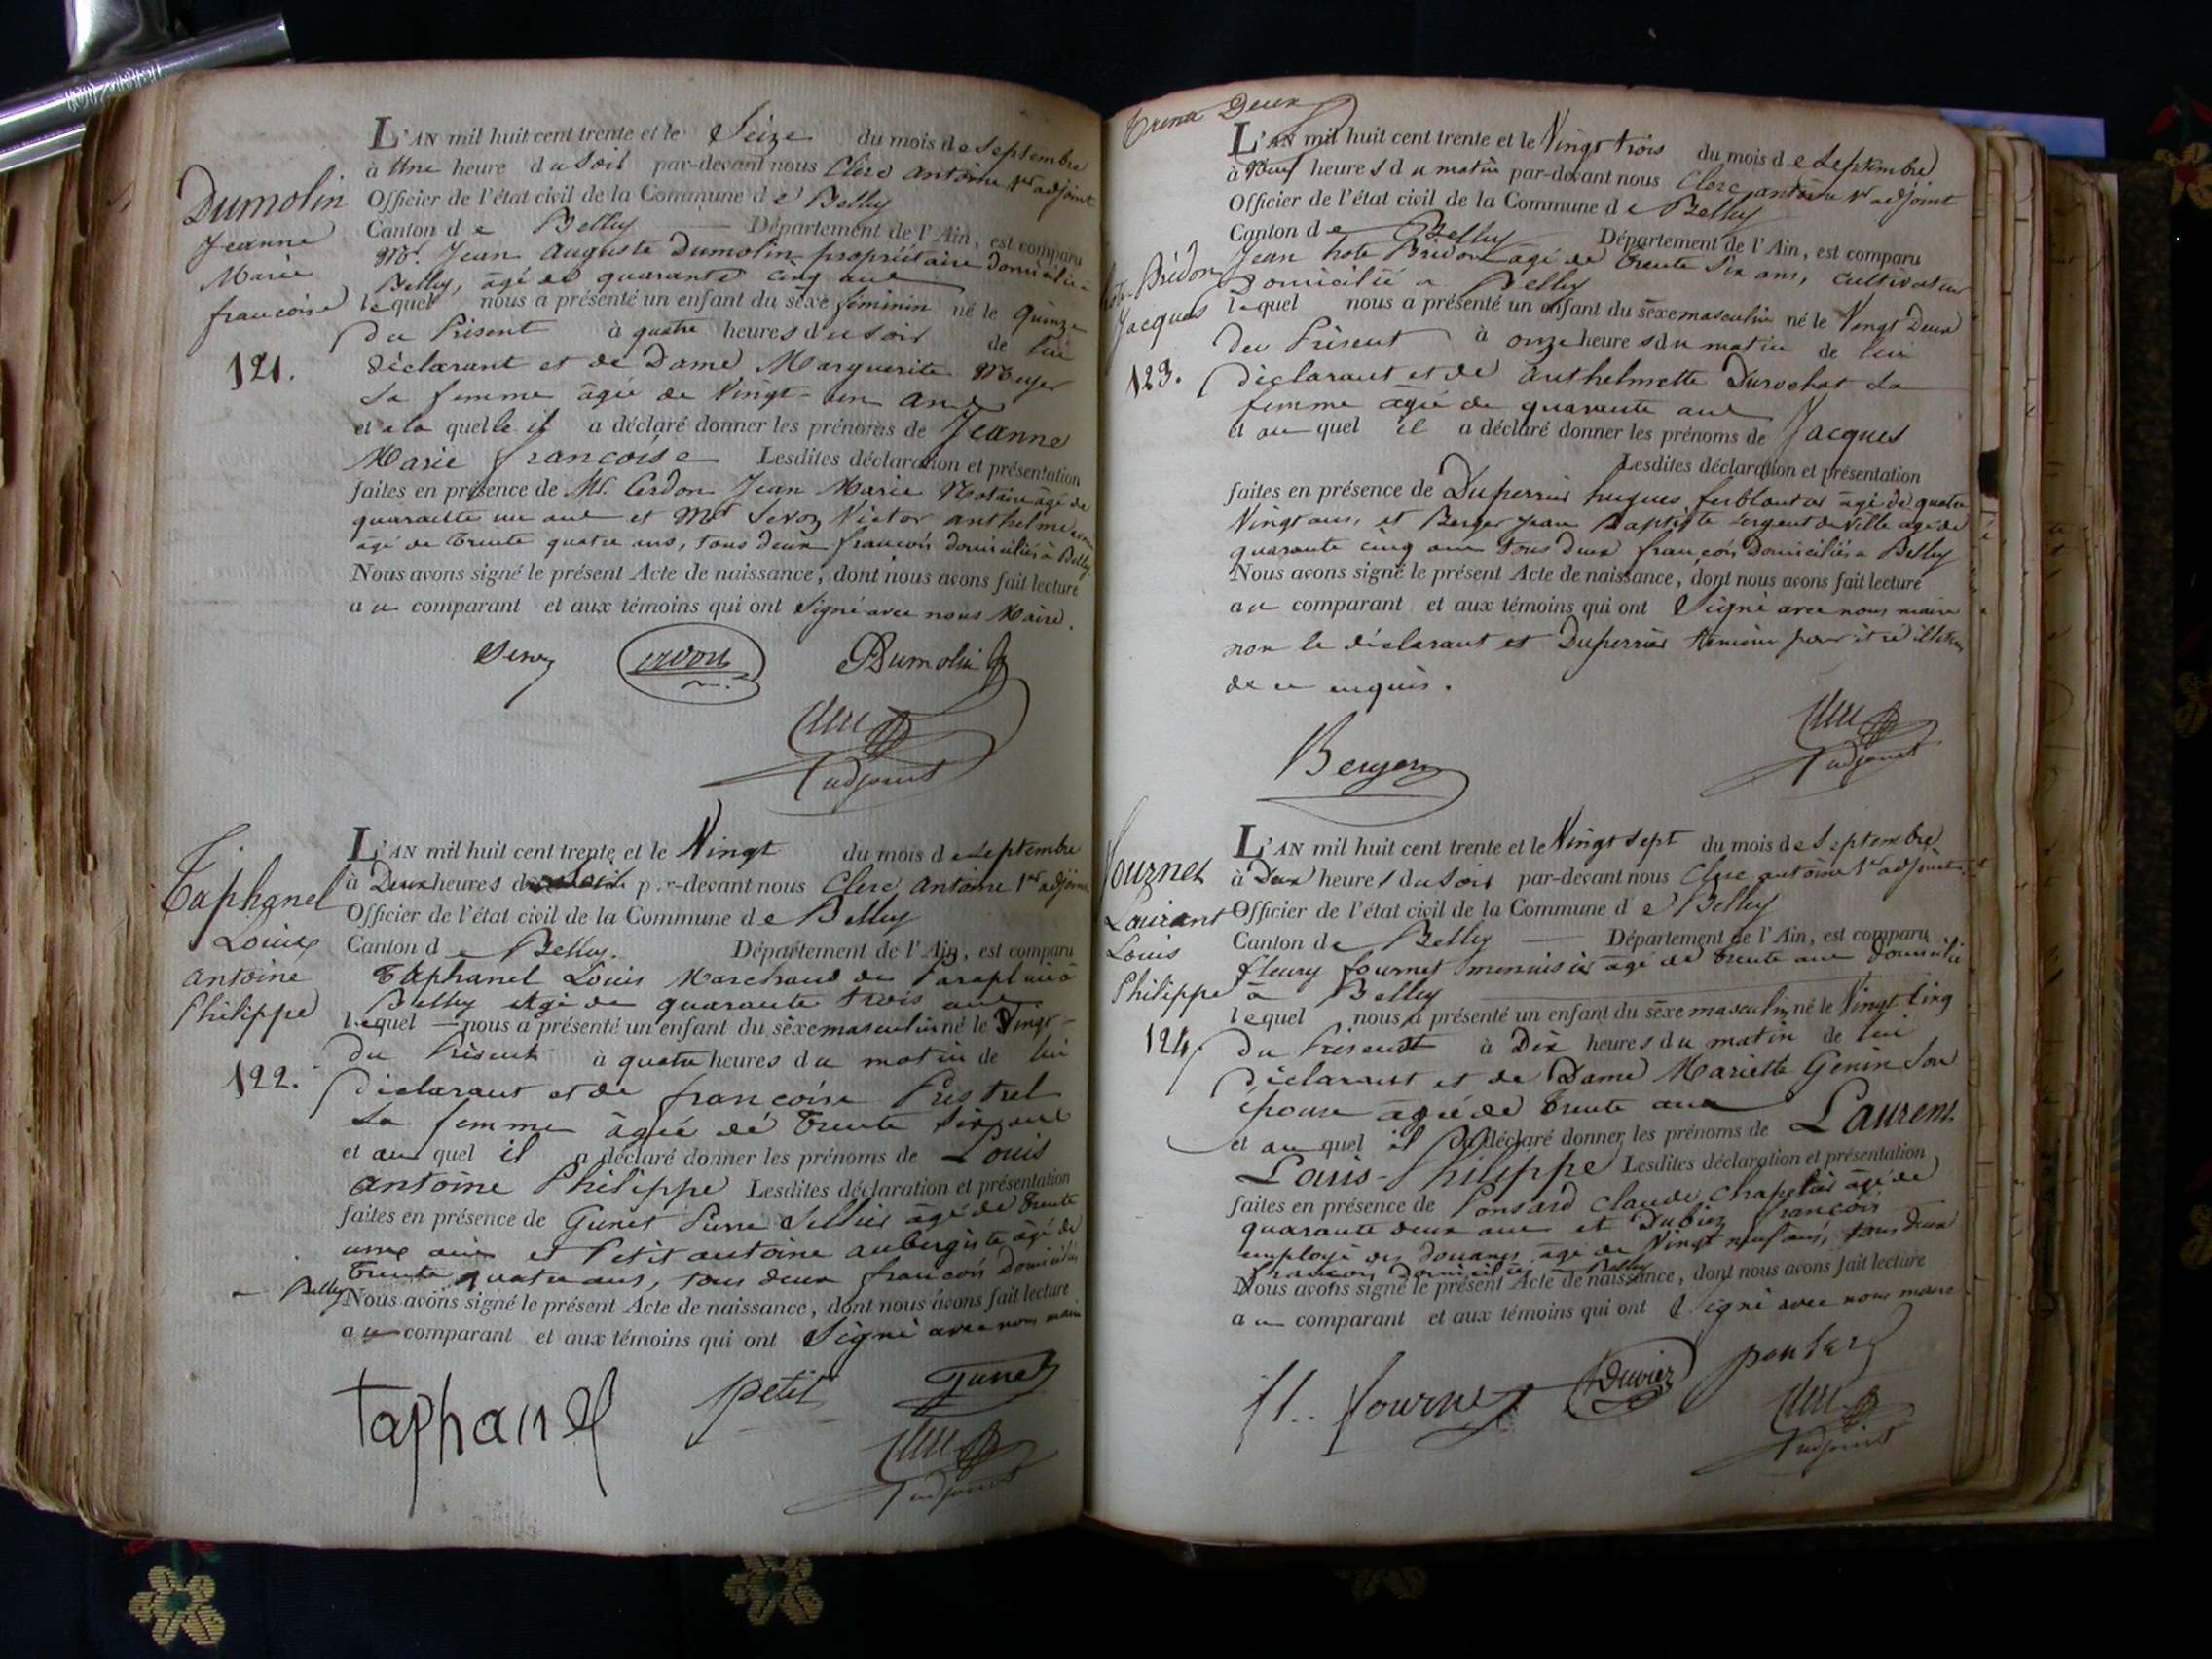 Dumolin
Jeanne
Marie
francoise
121.
L'AN mil huit cent trente et le Seize du mois de Septembre
à Une heure du Soir par-devant nous Clerc antoine 1er adjoint
Officier de l'état civil de la Commune de Belley
Canton de Belley Département de l'Ain, est comparu
Mr. Jean Auguste Dumolin propriétaire domicilié à
Belley, âgé de quarante cinq ans
lequel nous a présenté un enfant du sèxe féminin né le Quinze
du Présent à quatre heures du soir de lui
déclarant et de Dame Marguerite Meyer
Sa femme âgée de Vingt-un ans
et à la quelle il a déclaré donner les prénoms de Jeanne
Marie françoise Lesdites déclaration et présentation
faites en présence de Mr. Cerdon Jean Marie Notaire âgé de
quarante un ans et Mr Servoz Victor anthelme
âgé de trente quatre ans, tous deux francois domiciliés à Belley
Nous avons signé le présent Acte de naissance, dont nous avons fait lecture
au comparant et aux témoins qui ont Signé avec nous Maire.
Dumolin
Clerc
adjoint
Taphanel
Louis
antoine
Philippe
122.
L'AN mil huit cent trente et le Vingt du mois de Septembre
à Deux heures du Soir par-devant nous Clerc Antoine 1er adjoint
Officier de l'état civil de la Commune de Belley
Canton de Belley. Département de l'Ain, est comparu
Taphanel Louis Marchand de Parapluie à
Belley âgé de quarante trois ans
lequel nous a présenté un enfant du sèxe masculin né le Vingt
du Présent à quatre heures du matin de lui
déclarant et de françoise Prestrel
Sa femme âgée de trente Six ans
et au quel il a déclaré donner les prénoms de Louis
Antoine Philippe Lesdites déclaration et présentation
faites en présence de Gunet Pierre Sellier âgé de trente
un ans et Petit antoine aubergiste âgé de
trente quatre ans, tous deux francois Domiciliés
à Belley Nous avons signé le présent Acte de naissance, dont nous avons fait lecture
au comparant et aux témoins qui ont Signé avec nous maire
taphanel petit Gunet
Clerc
adjoint
Trente Deux
hote-Bridon
Jacques
123.
L'AN mil huit cent trente et le Vingt trois du mois de Septembre
à Neuf heures du matin par-devant nous Clerc antoine 1er adjoint
Officier de l'état civil de la Commune de Belley
Canton de Belley Département de l'Ain, est comparu
Jean hote Bridon âgé de trente Six ans, cultivateur
Domicilié à Belley
lequel nous a présenté un enfant du sèxe masculin né le Vingt Deux
du Présent à onze heures du matin de lui
déclarant et de Anthelmette Durochat Sa
femme âgée de quarante ans
et au quel il a déclaré donner les prénoms de Jacques
Lesdites déclaration et présentation
faites en présence de Duperrier hugues ferblantier âgé de quatre
Vingt ans, et Berger Jean Baptiste Sergent de Ville âgé de
quarante cinq ans tous Deux françois Domiciliés à Belley
Nous avons signé le présent Acte de naissance, dont nous avons fait lecture
au comparant et aux témoins qui ont Signé avec nous maire
non le déclarant et Duperrier témoin pour être illitéré
de ce enquis.
Berger
Clerc
adjoint
fournet
Laurent
Louis
Philippe
124.
L'AN mil huit cent trente et le Vingt Sept du mois de Septembre
à Deux heures du Soir par-devant nous Clerc antoine 1er adjoint
Officier de l'état civil de la Commune de Belley
Canton de Belley Département de l'Ain, est comparu
fleury fournet menuisier âgé de trente ans domicilié
à Belley
lequel nous a présenté un enfant du sèxe masculin né le Vingt Cinq
du Présent à Dix heures du matin de lui
Déclarant et de Dame Mariette Genin Son
épouse âgée de trente ans
et au quel il a déclaré donner les prénoms de Laurent
Louis-Philippe Lesdites déclaration et présentation
faites en présence de Ponsard Claude Chapelier âgé de
quarante deux ans et Dubiez françois
employé des Douanes âgé de Vingt neuf ans, tous deux
francois Domiciliés à Belley
Nous avons signé le présent Acte de naissance, dont nous avons fait lecture
au comparant et aux témoins qui ont Signé avec nous maire
fl.. fournet
Clerc
adjoint